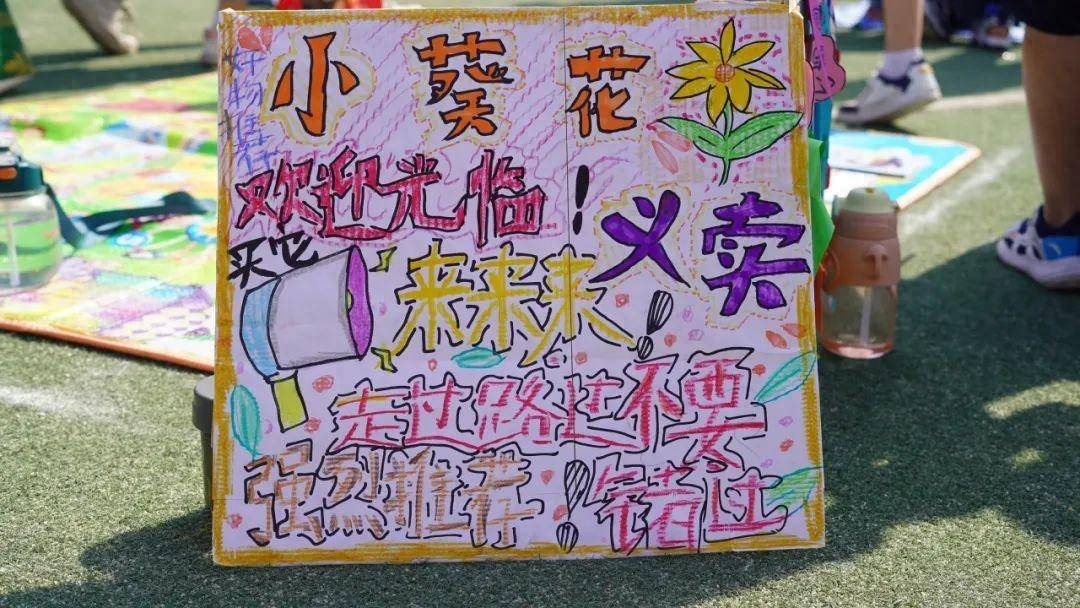 小葵花
好物推荐
欢迎光临！
义卖
买它
来来来！
走过路过不要
强烈推荐！错过